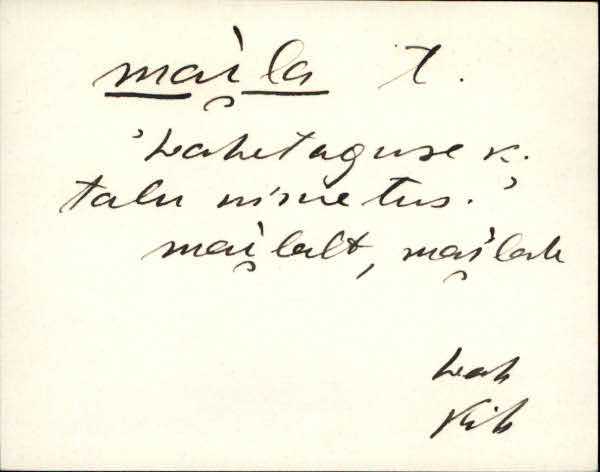 mai̯la t.
'Lahetaguse k.
talu nimetus.'
mai̯lalt, mai̯lah
Lah
Kih